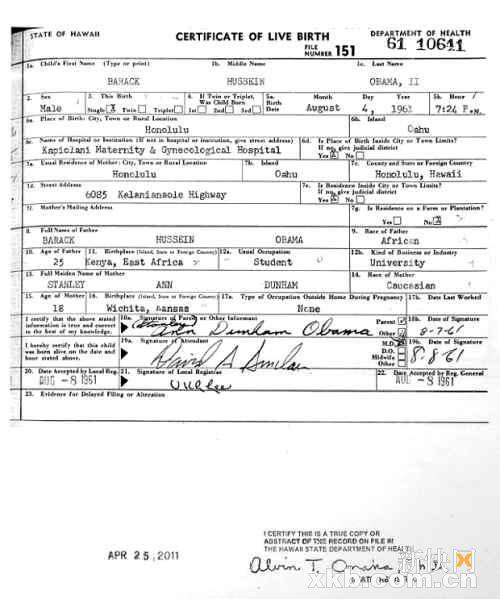 STATE OF HAWAII
CERTIFICATE OF LIVE BIRTH
DEPARTMENT OF HEALTH
FILE NUMBER 151
61 10641
1a. Child's First Name (Type or print)
1b. Middle Name
1c. Last Name
BARACK HUSSEIN OBAMA, II
2. Sex
Male
3. This Birth
Single X Twin Triplet
4. If Twin or Triplet, Was Child Born
1st 2nd 3rd
5a. Birth Date
Month Day Year
August 4, 1961
5b. Hour
7:24 P.M.
6a. Place of Birth: City, Town or Rural Location
Honolulu
6b. Island
Oahu
6c. Name of Hospital or Institution (If not in hospital or institution, give street address)
Kapiolani Maternity & Gynecological Hospital
6d. Is Place of Birth Inside City or Town Limits?
If no, give judicial district
Yes X No
7a. Usual Residence of Mother: City, Town or Rural Location
Honolulu
7b. Island
Oahu
7c. County and State or Foreign Country
Honolulu, Hawaii
7d. Street Address
6085 Kalanianaole Highway
7e. Is Residence Inside City or Town Limits?
If no, give judicial district
Yes X No
7f. Mother's Mailing Address
7g. Is Residence on a Farm or Plantation?
Yes No X
8. Full Name of Father
BARACK HUSSEIN OBAMA
9. Race of Father
African
10. Age of Father
25
11. Birthplace (Island, State or Foreign Country)
Kenya, East Africa
12a. Usual Occupation
Student
12b. Kind of Business or Industry
University
13. Full Maiden Name of Mother
STANLEY ANN DUNHAM
14. Race of Mother
Caucasian
15. Age of Mother
18
16. Birthplace (Island, State or Foreign Country)
Wichita, Kansas
17a. Type of Occupation Outside Home During Pregnancy
None
17b. Date Last Worked
I certify that the above stated
information is true and correct
to the best of my knowledge.
18a. Signature of Parent or Other Informant
(Stanley) Ann Dunham Obama
Parent
Other
18b. Date of Signature
8-7-61
I hereby certify that this child
was born alive on the date and
hour stated above.
19a. Signature of Attendant
David A Sinclair
M.D.
D.O.
Midwife
Other
19b. Date of Signature
8.8.61
20. Date Accepted by Local Reg.
AUG -8 1961
21. Signature of Local Registrar
U K L Lee
22. Date Accepted by Reg. General
AUG -8 1961
23. Evidence for Delayed Filing or Alteration
APR 25, 2011
I CERTIFY THIS IS A TRUE COPY OR
ABSTRACT OF THE RECORD ON FILE IN
THE HAWAII STATE DEPARTMENT OF HEALTH
Alvin T. Onaka, Ph.D.
STATE REGISTRAR
新快网
xkb.com.cn